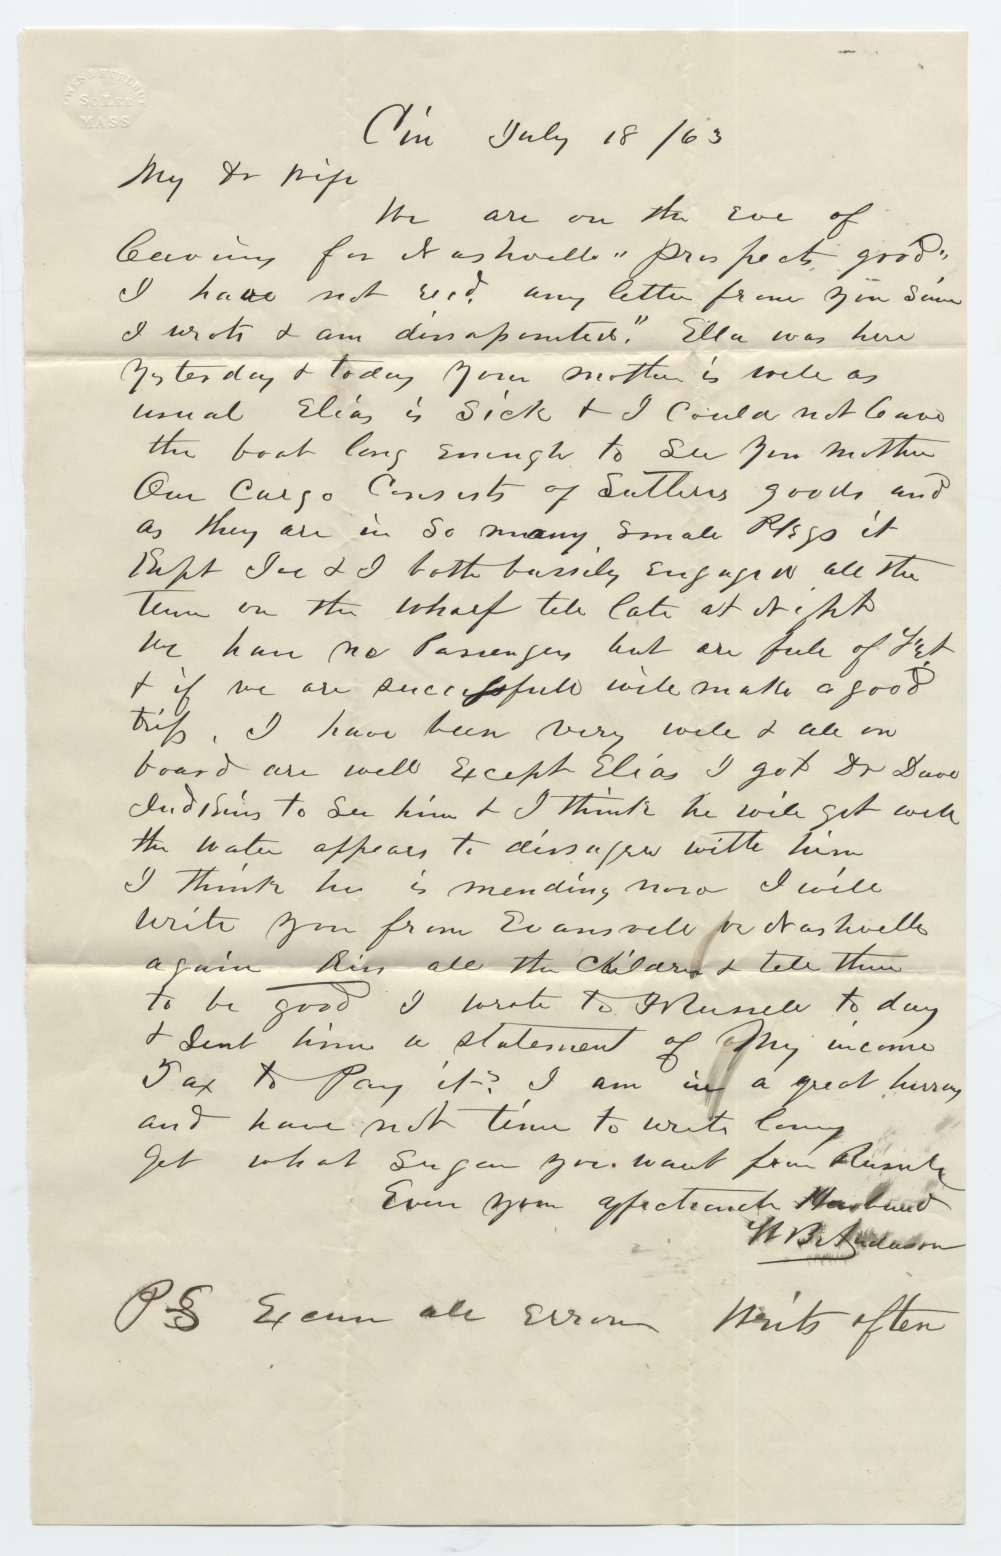 OWEN & HURLBUT
So LEE
MASS
Cin July 18 /63
My Dr Wife
We are on the Eve of
leaving for Nashville" prospects good"
I have not recd. any letter from you since
I wrote & am dissapointed." Ella was here
yesterday & today your mother is well as
usual Elias is Sick & I Could not leave
the boat long enough to See your mother
Our Cargo Consists of Sutlers goods and
as they are in So many small Pkgs it
Kept Joe & I both bussily engaged all the
time on the wharf till late at Night
We have no Passengers but are full of Frt
& if we are successfull will make a good
trip. I have been very well & all on
board are well Except Elias I got Dr Dave
Judkins to See him & I think he will get well
the water appears to dissagree with him
I think he is mending now I will
write you from Evansvill or Nashville
again Kiss all the Children & tell them
to be good I wrote to Russell to day
& Sent him a statement of My income
Tax to Pay it-? I am in a great hurry
and have not time to write long
Get what Sugar you want from Russell
Ever your affectionate Husband
Anderson
PS Excuse all Errors Write often